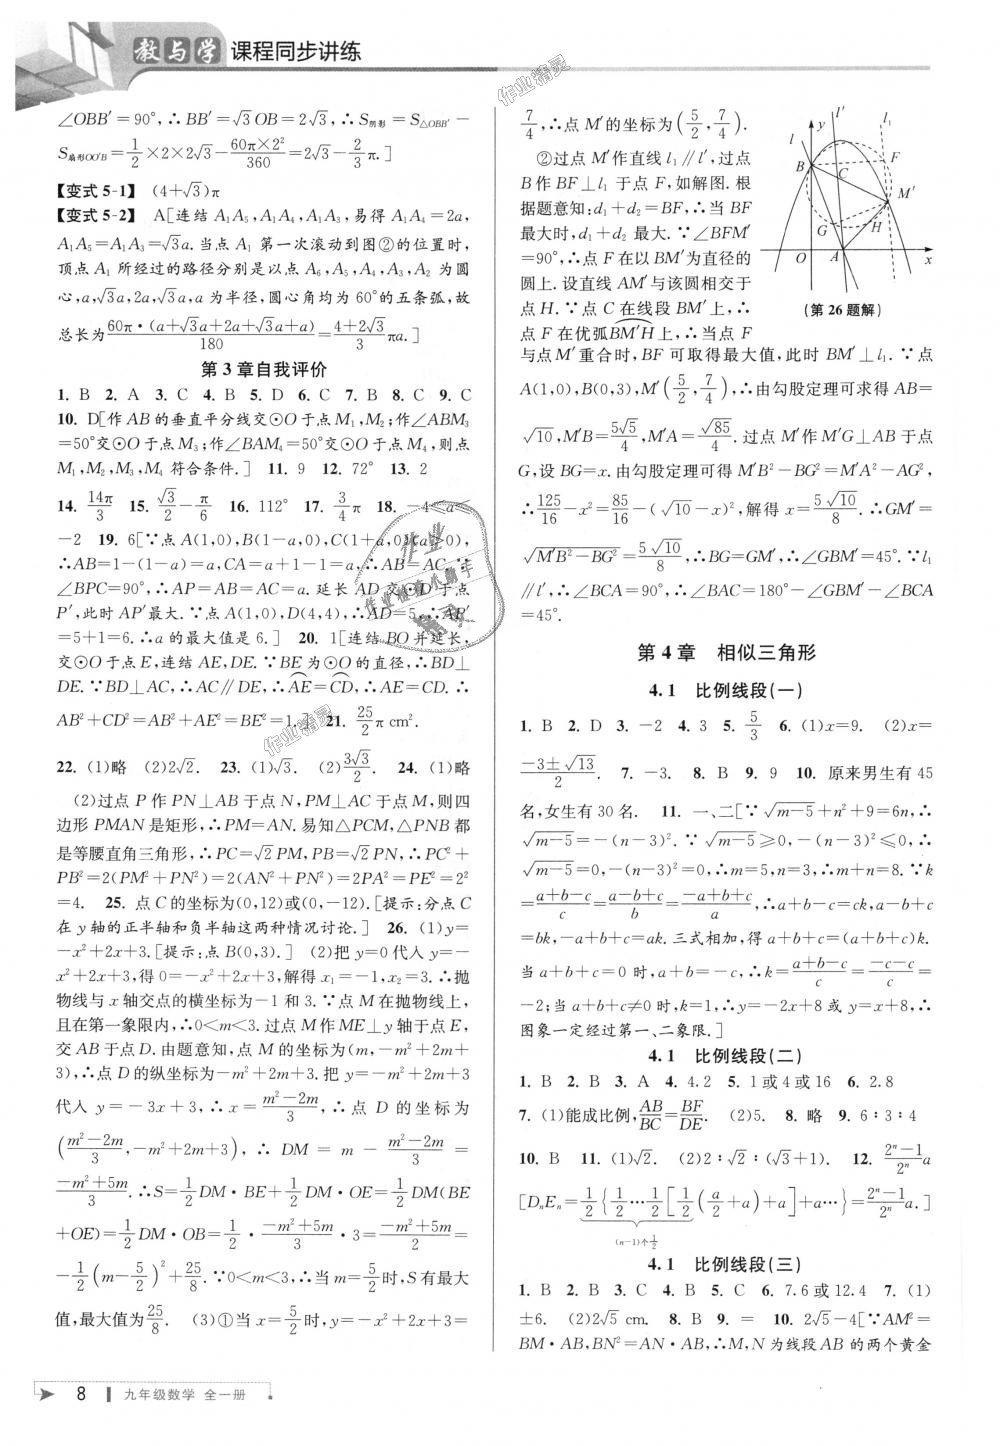 教与学 课程同步讲练
∠OBB′=90°,∴BB′=√3OB=2√3,∴S阴影=S△OBB′-
S扇形OO′B=1/2×2×2√3-60π×2²/360=2√3-2/3π.]
【变式5-1】 (4+√3)π
【变式5-2】 A[连结A₁A₅,A₁A₄,A₁A₃,易得A₁A₄=2a,
A₁A₅=A₁A₃=√3a.当点A₁第一次滚动到图②的位置时,
顶点A₁所经过的路径分别是以点A₆,A₅,A₄,A₃,A₂为圆
心,a,√3a,2a,√3a,a为半径,圆心角均为60°的五条弧,故
总长为60π·(a+√3a+2a+√3a+a)/180=(4+2√3)/3πa.]
第3章自我评价
1. B 2. A 3. C 4. B 5. D 6. C 7. B 8. C 9. C
10. D[作AB的垂直平分线交⊙O于点M₁,M₂;作∠ABM₃
=50°交⊙O于点M₃;作∠BAM₄=50°交⊙O于点M₄,则点
M₁,M₂,M₃,M₄符合条件.] 11. 9 12. 72° 13. 2
14. 14π/3 15. √3/2-π/6 16. 112° 17. 3/4π 18. -4<a<
-2 19. 6[∵点A(1,0),B(1-a,0),C(1+a,0)(a>0),
∴AB=1-(1-a)=a,CA=a+1-1=a,∴AB=AC.∵
∠BPC=90°,∴AP=AB=AC=a.延长AD交⊙D于点
P′,此时AP′最大.∵点A(1,0),D(4,4),∴AD=5,∴AP′
=5+1=6.∴a的最大值是6.] 20. 1[连结BO并延长,
交⊙O于点E,连结AE,DE.∵BE为⊙O的直径,∴BD⊥
DE.∵BD⊥AC,∴AC∥DE,∴AE=CD,∴AE=CD.∴
AB²+CD²=AB²+AE²=BE²=1.] 21. 25/2π cm².
22. (1)略 (2)2√2. 23. (1)√3. (2)3√3/2. 24. (1)略
(2)过点P作PN⊥AB于点N,PM⊥AC于点M,则四
边形PMAN是矩形,∴PM=AN.易知△PCM,△PNB都
是等腰直角三角形,∴PC=√2PM,PB=√2PN,∴PC²+
PB²=2(PM²+PN²)=2(AN²+PN²)=2PA²=PE²=2²
=4. 25. 点C的坐标为(0,12)或(0,-12).[提示:分点C
在y轴的正半轴和负半轴这两种情况讨论.] 26. (1)y=
-x²+2x+3.[提示:点B(0,3).] (2)把y=0代入y=-
x²+2x+3,得0=-x²+2x+3,解得x₁=-1,x₂=3.∴抛
物线与x轴交点的横坐标为-1和3.∵点M在抛物线上,
且在第一象限内,∴0<m<3.过点M作ME⊥y轴于点E,
交AB于点D.由题意知,点M的坐标为(m,-m²+2m+
3),∴点D的纵坐标为-m²+2m+3.把y=-m²+2m+3
代入y=-3x+3,∴x=(m²-2m)/3,∴点D的坐标为
((m²-2m)/3,-m²+2m+3),∴DM=m-(m²-2m)/3=
(-m²+5m)/3.∴S=1/2DM·BE+1/2DM·OE=1/2DM(BE
+OE)=1/2DM·OB=1/2·(-m²+5m)/3·3=(-m²+5m)/2=
-1/2(m-5/2)²+25/8.∵0<m<3,∴当m=5/2时,S有最大
值,最大值为25/8. (3)①当x=5/2时,y=-x²+2x+3=
7/4,∴点M′的坐标为(5/2,7/4).
②过点M′作直线l₁∥l′,过点
B作BF⊥l₁于点F,如解图.根
据题意知:d₁+d₂=BF,∴当BF
最大时,d₁+d₂最大.∵∠BFM′
=90°,∴点F在以BM′为直径的
圆上.设直线AM′与该圆相交于
点H.∵点C在线段BM′上,∴
点F在优弧BM′H上,∴当点F
l l₁ l′ y B F C M′ G H O A x
(第26题解)
与点M′重合时,BF可取得最大值,此时BM′⊥l₁.∵点
A(1,0),B(0,3),M′(5/2,7/4),∴由勾股定理可求得AB=
√10,M′B=5√5/4,M′A=√85/4.过点M′作M′G⊥AB于点
G,设BG=x.由勾股定理可得M′B²-BG²=M′A²-AG²,
∴125/16-x²=85/16-(√10-x)²,解得x=5√10/8.∴GM′=
√(M′B²-BG²)=5√10/8,∴BG=GM′,∴∠GBM′=45°.∵l₁
∥l′,∴∠BCA=90°,∴∠BAC=180°-∠GBM′-∠BCA
=45°.
第4章 相似三角形
4.1 比例线段(一)
1. B 2. D 3. -2 4. 3 5. 5/3 6. (1)x=9. (2)x=
(-3±√13)/2. 7. -3. 8. B 9. 9 10. 原来男生有45
名,女生有30名. 11. 一、二[∵√(m-5)+n²+9=6n,∴
√(m-5)=-(n-3)².∵√(m-5)≥0,-(n-3)²≤0,∴
√(m-5)=0,-(n-3)²=0,∴m=5,n=3,∴m+n=8.∵k
=(a+b-c)/c=(a-b+c)/b=(-a+b+c)/a,∴a+b-c=ck,a-b+c
=bk,-a+b+c=ak.三式相加,得a+b+c=(a+b+c)k.
当a+b+c=0时,a+b=-c,∴k=(a+b-c)/c=(-c-c)/c=
-2;当a+b+c≠0时,k=1,∴y=-2x+8或y=x+8,∴
图象一定经过第一、二象限.]
4.1 比例线段(二)
1. B 2. B 3. A 4. 4.2 5. 1或4或16 6. 2.8
7. (1)能成比例,AB/BC=BF/DE. (2)5. 8. 略 9. 6∶3∶4
10. B 11. (1)√2. (2)2∶√2∶(√3+1). 12. (2ⁿ-1)/2ⁿ a
[DₙEₙ=1/2{1/2…1/2[1/2(a/2+a)+a]+a…}=(2ⁿ-1)/2ⁿ a.]
(n-1)个1/2
4.1 比例线段(三)
1. B 2. B 3. C 4. B 5. C 6. 7.6或12.4 7. (1)
±6. (2)2√5 cm. 8. B 9. = 10. 2√5-4[∵AM²=
BM·AB,BN²=AN·AB,∴M,N为线段AB的两个黄金
8 九年级数学 全一册
作业精灵